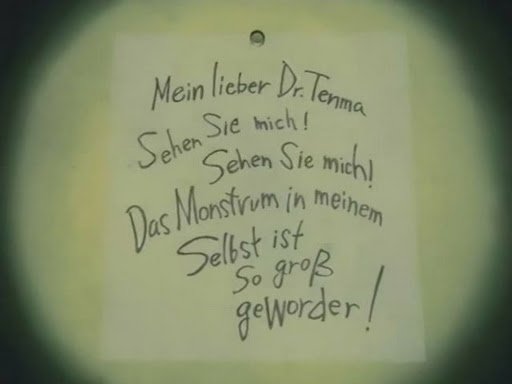 Mein lieber Dr. Tenma
Sehen Sie mich!
Sehen Sie mich!
Das Monstrum in meinem
Selbst ist
So groß
geworder!